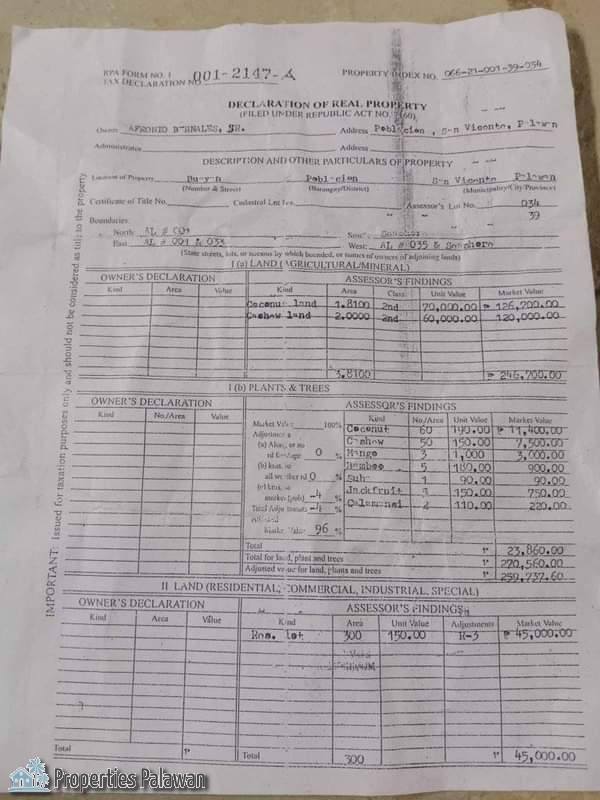 RPA FORM NO. 1
TAX DECLARATION NO. 001-2147-A
PROPERTY INDEX NO. 066-21-001-39-054
DECLARATION OF REAL PROPERTY
(FILED UNDER REPUBLIC ACT NO. 7160)
Owner Address Poblacion, San Vicente, Palawan
Administrator Address
DESCRIPTION AND OTHER PARTICULARS OF PROPERTY
Location of Property Poblacion San Vicente Palawan
(Number & Street) (Barangay/District) (Municipality/City/Province)
Certificate of Title No. Cadastral Lot No. Assessor's Lot No. 034
39
Boundaries:
North AL # South
East AL # 001 & 033 West: AL # 035 & Seashore
(State streets, lots, or streams by which bounded, or names of owners of adjoining lands)
I (a) LAND (AGRICULTURAL/MINERAL)
OWNER'S DECLARATION ASSESSOR'S FINDINGS
Kind Area Value Kind Area Class Unit Value Market Value
Coconut land 1.8100 2nd 70,000.00 ₱ 126,700.00
Cashew land 2.0000 2nd 60,000.00 120,000.00
3.8100 ₱ 246,700.00
I (b) PLANTS & TREES
OWNER'S DECLARATION ASSESSOR'S FINDINGS
Kind No./Area Value Market Value 100% Kind No/Area Unit Value Market Value
Coconut 60 190.00 ₱ 11,400.00
Cashew 50 150.00 7,500.00
Mango 3 1,000 3,000.00
0 %
Bamboo 5 180.00 900.00
0 %
1 90.00 90.00
-4 % Jackfruit 150.00 750.00
Total Adjustments -4 % Calamansi 2 110.00 220.00
Market Value 96 %
Total ₱ 23,860.00
Total for land, plant and trees ₱ 270,560.00
Adjusted value for land, plants and trees ₱ 259,737.60
II LAND (RESIDENTIAL, COMMERCIAL, INDUSTRIAL, SPECIAL)
OWNER'S DECLARATION ASSESSOR'S FINDINGS
Kind Area Value Kind Area Unit Value Adjustments Market Value
Res. lot 300 150.00 R-3 ₱ 45,000.00
Total ₱ Total 300 ₱ 45,000.00
IMPORTANT: Issued for taxation purposes only and should not be considered as title to the property
Properties Palawan